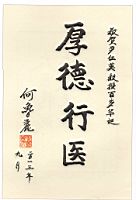 敬贺严仁英教授百岁华诞
厚德行医
何鲁丽
二〇一三年
九月